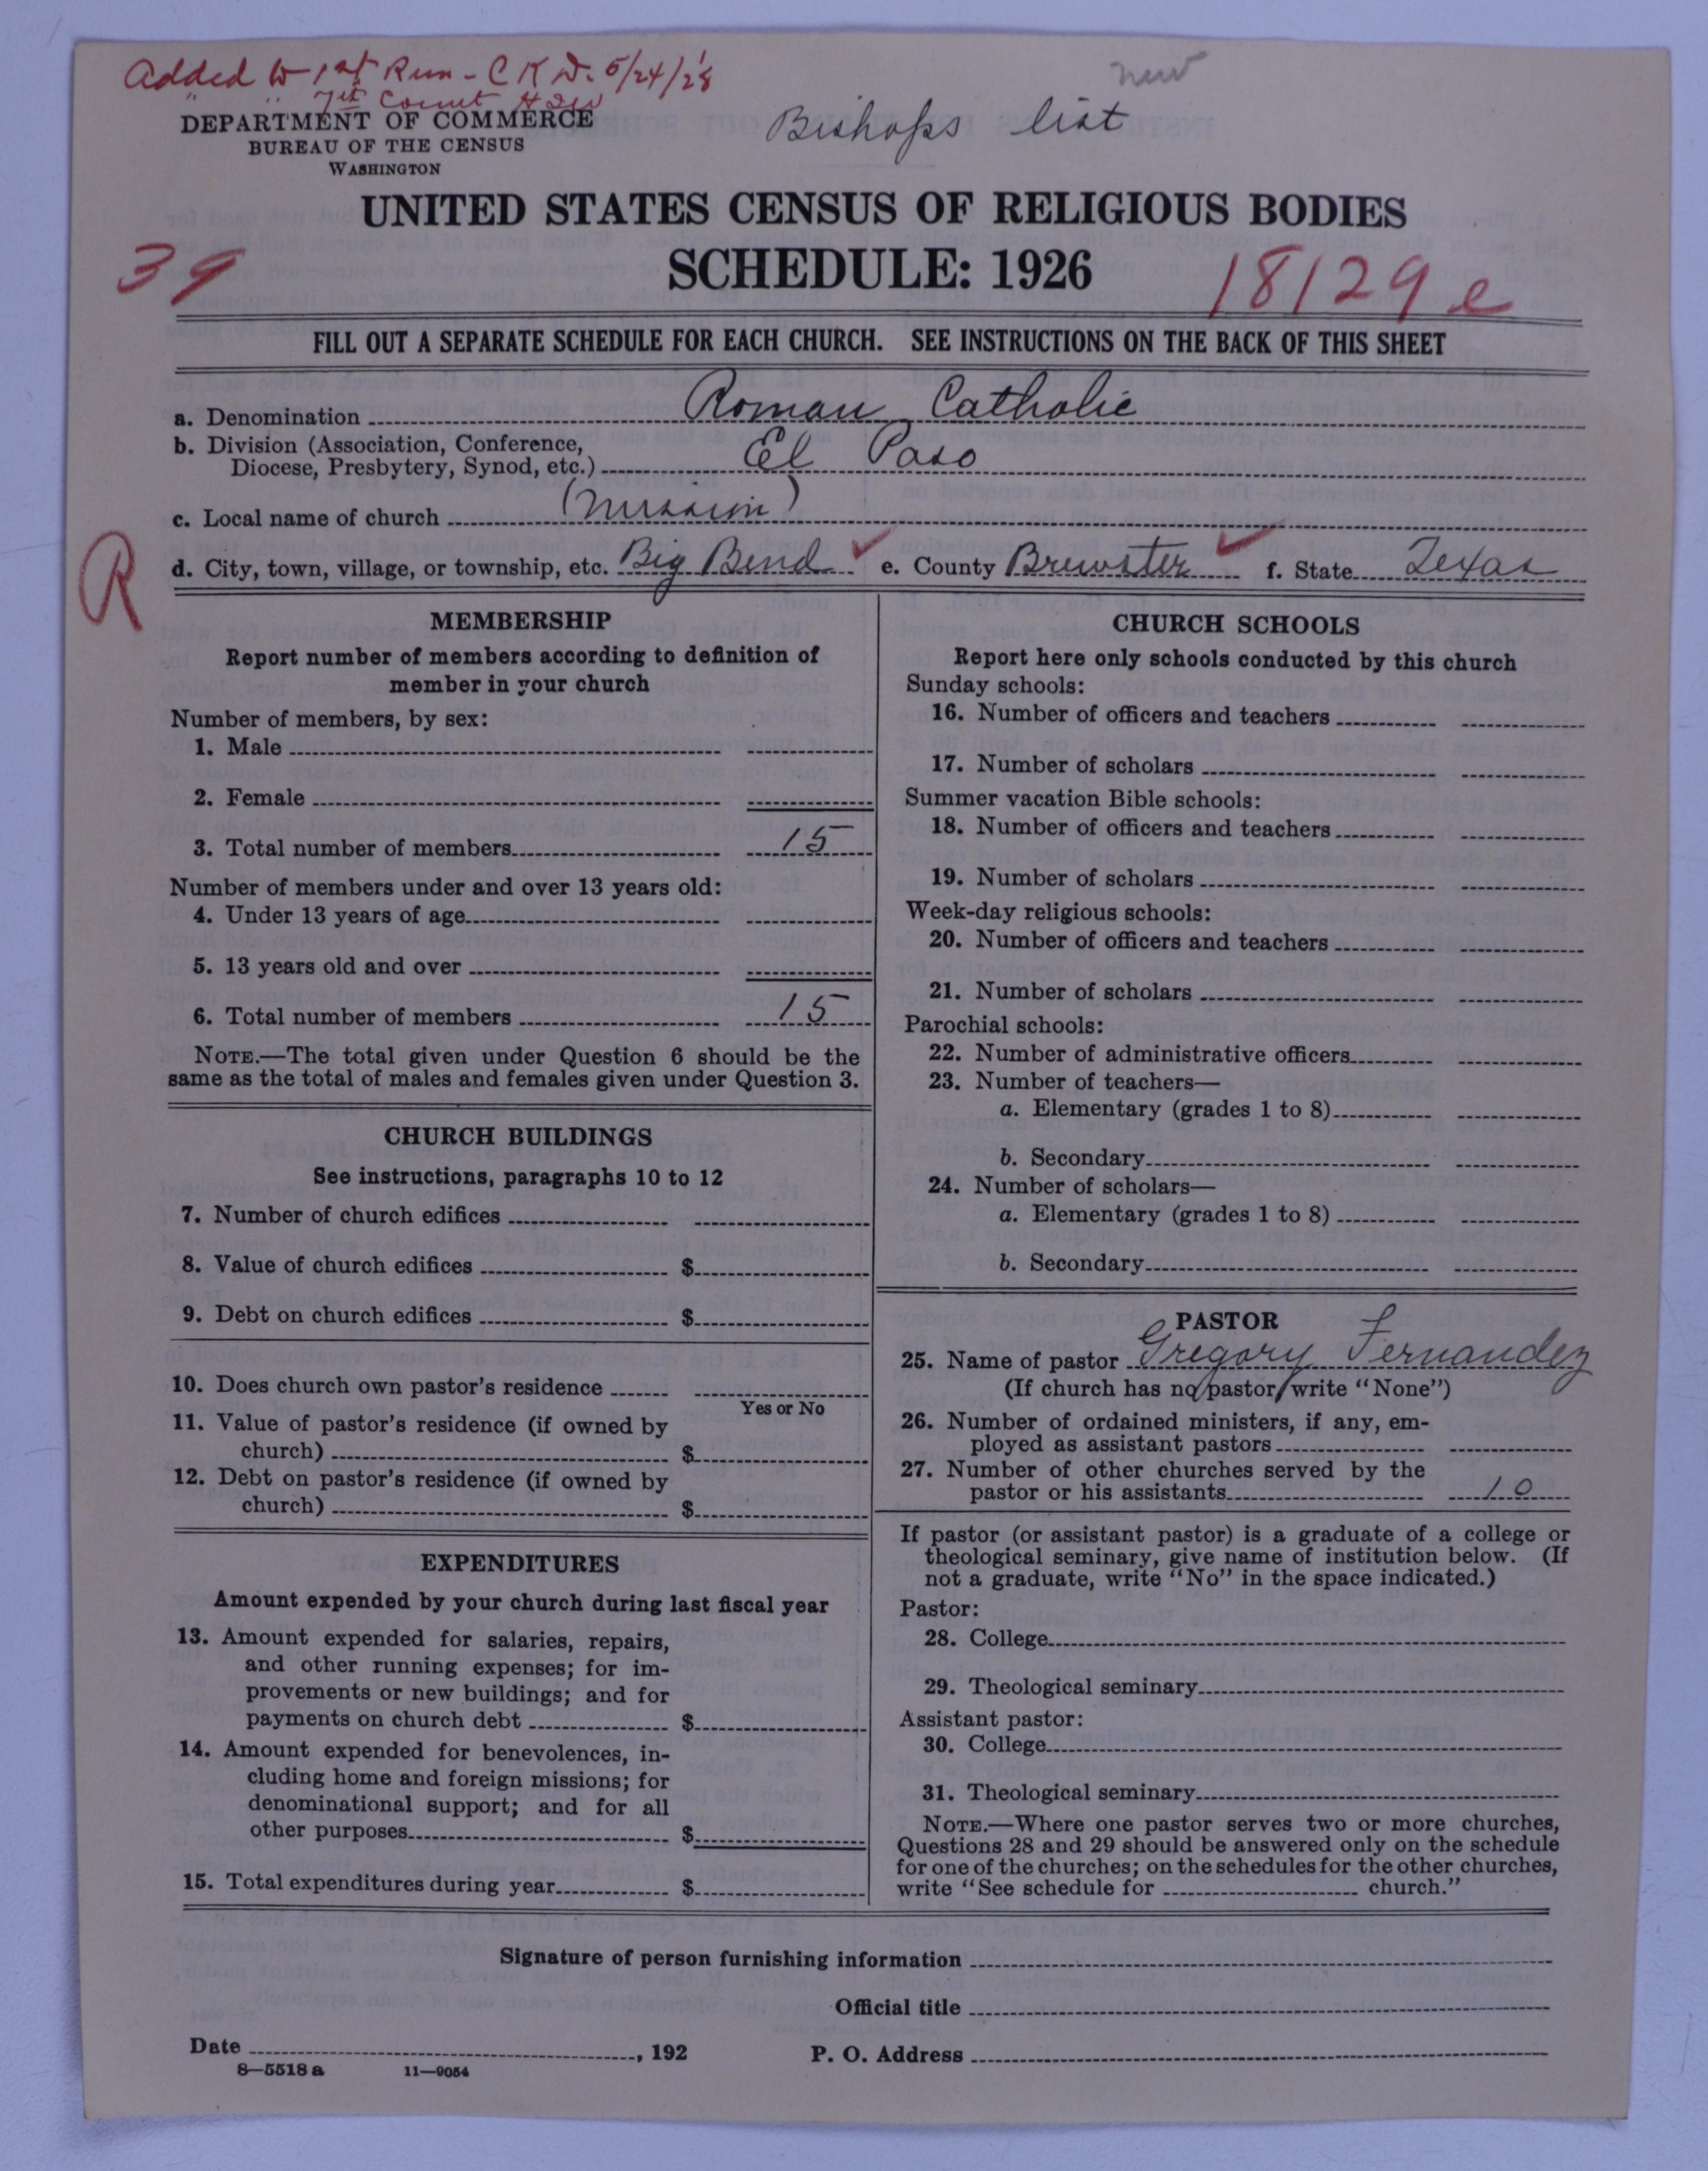 Added to 1st Run - C K W. 5/24/28
" " 7th Count
new
Bishops list
DEPARTMENT OF COMMERCE
BUREAU OF THE CENSUS
WASHINGTON
UNITED STATES CENSUS OF RELIGIOUS BODIES
SCHEDULE: 1926
39
18129 e
FILL OUT A SEPARATE SCHEDULE FOR EACH CHURCH. SEE INSTRUCTIONS ON THE BACK OF THIS SHEET
a. Denomination Roman Catholic
b. Division (Association, Conference,
Diocese, Presbytery, Synod, etc.) El Paso
c. Local name of church (Mission)
R
d. City, town, village, or township, etc. Big Bend ✓ e. County Brewster ✓ f. State Texas
MEMBERSHIP
Report number of members according to definition of
member in your church
Number of members, by sex:
1. Male
2. Female
3. Total number of members 15
Number of members under and over 13 years old:
4. Under 13 years of age
5. 13 years old and over
6. Total number of members 15
NOTE.—The total given under Question 6 should be the
same as the total of males and females given under Question 3.
CHURCH BUILDINGS
See instructions, paragraphs 10 to 12
7. Number of church edifices
8. Value of church edifices $
9. Debt on church edifices $
10. Does church own pastor's residence
Yes or No
11. Value of pastor's residence (if owned by
church) $
12. Debt on pastor's residence (if owned by
church) $
EXPENDITURES
Amount expended by your church during last fiscal year
13. Amount expended for salaries, repairs,
and other running expenses; for im-
provements or new buildings; and for
payments on church debt $
14. Amount expended for benevolences, in-
cluding home and foreign missions; for
denominational support; and for all
other purposes $
15. Total expenditures during year $
CHURCH SCHOOLS
Report here only schools conducted by this church
Sunday schools:
16. Number of officers and teachers
17. Number of scholars
Summer vacation Bible schools:
18. Number of officers and teachers
19. Number of scholars
Week-day religious schools:
20. Number of officers and teachers
21. Number of scholars
Parochial schools:
22. Number of administrative officers
23. Number of teachers—
a. Elementary (grades 1 to 8)
b. Secondary
24. Number of scholars—
a. Elementary (grades 1 to 8)
b. Secondary
PASTOR
25. Name of pastor Gregory Fernandez
(If church has no pastor, write "None")
26. Number of ordained ministers, if any, em-
ployed as assistant pastors
27. Number of other churches served by the
pastor or his assistants 10
If pastor (or assistant pastor) is a graduate of a college or
theological seminary, give name of institution below. (If
not a graduate, write "No" in the space indicated.)
Pastor:
28. College
29. Theological seminary
Assistant pastor:
30. College
31. Theological seminary
NOTE.—Where one pastor serves two or more churches,
Questions 28 and 29 should be answered only on the schedule
for one of the churches; on the schedules for the other churches,
write "See schedule for church."
Signature of person furnishing information
Official title
Date , 192
P. O. Address
8—5518 a 11—9054